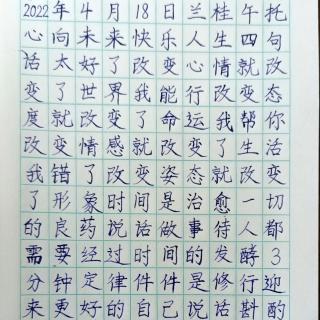 2022年4月18日兰桂午托
心向未来快乐人生四句
话太好了改变心情就改
变了世界我能行改变态
度就改变了命运我帮你
改变情感就改变了生活
我错了改变姿态就改变
了形象时间是治愈一切
的良药说话做事待人都
需要经过时间的发酵3
分钟定律件件是修行迎
来更好的自己说话斟酌